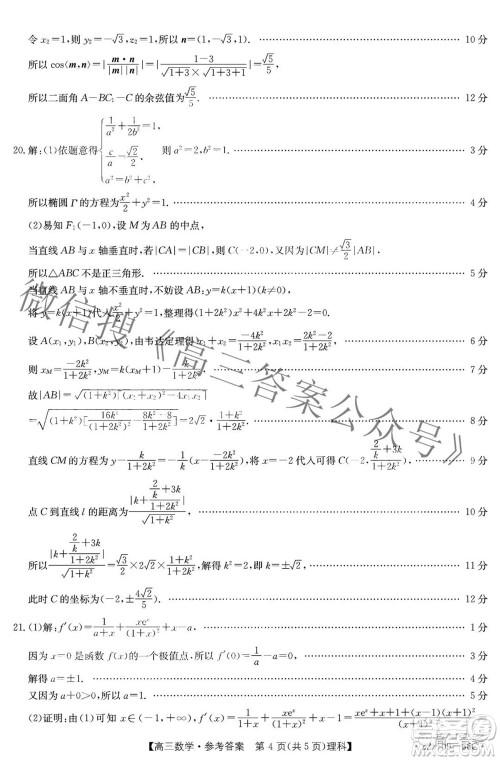 令 x₂=1,则 y₂=-√3,z₂=1,所以 n=(1,-√3,1). 10 分
所以 cos⟨m,n⟩=|m·n/(|m||n|)|=|(1-3)/(√(1+3)×√(1+3+1))|=√5/5,
所以二面角 A-BC₁-C 的余弦值为√5/5. 12 分
20. 解:(1)依题意得 { 1/a²+1/(2b²)=1, c/a=√2/2, a²=b²+c² 则 a²=2,b²=1. 3 分
所以椭圆 Γ 的方程为 x²/2+y²=1. 4 分
(2)易知 F₁(-1,0),设 M 为 AB 的中点,
当直线 AB 与 x 轴垂直时,若|CA|=|CB|,则 C(-2,0),又因为|CM|≠√3/2|AB|,
所以△ABC 不是正三角形. 5 分
当直线 AB 与 x 轴不垂直时,不妨设 AB:y=k(x+1)(k≠0),
将 y=k(x+1)代入 x²/2+y²=1 得(1+2k²)x²+4k²x+2k²-2=0.
设 A(x₁,y₁),B(x₂,y₂),由韦达定理得 x₁+x₂=-4k²/(1+2k²),x₁x₂=(2k²-2)/(1+2k²). 6 分
则 x_M=-2k²/(1+2k²),y_M=k(x_M+1)=k/(1+2k²). 7 分
故|AB|=√((1+k²)[(x₁+x₂)²-4x₁x₂])
=√((1+k²)[16k⁴/(1+2k²)²-(8k²-8)/(1+2k²)])=2√2·(1+k²)/(1+2k²). 8 分
直线 CM 的方程为 y-k/(1+2k²)=-1/k(x+2k²/(1+2k²)),将 x=-2 代入可得 C(-2,(2/k+3k)/(1+2k²)). 9 分
点 C 到直线 l 的距离为|k+(2/k+3k)/(1+2k²)|/√(1+k²), 10 分
所以|k+(2/k+3k)/(1+2k²)|/√(1+k²)=√3/2×2√2×(1+k²)/(1+2k²),解得 k²=2,即 k=±√2, 11 分
此时 C 的坐标为(-2,±4√2/5). 12 分
21. (1)解:f′(x)=1/(a+x)+xeˣ/(1+x)²+x-a, 1 分
因为 x=0 是函数 f(x)的一个极值点,所以 f′(0)=1/a-a=0. 3 分
解得 a=±1. 4 分
又因为 a+0>0,所以 a=1. 5 分
【高三数学·参考答案 第 4 页(共 5 页)理科】
微信搜《高三答案公众号》